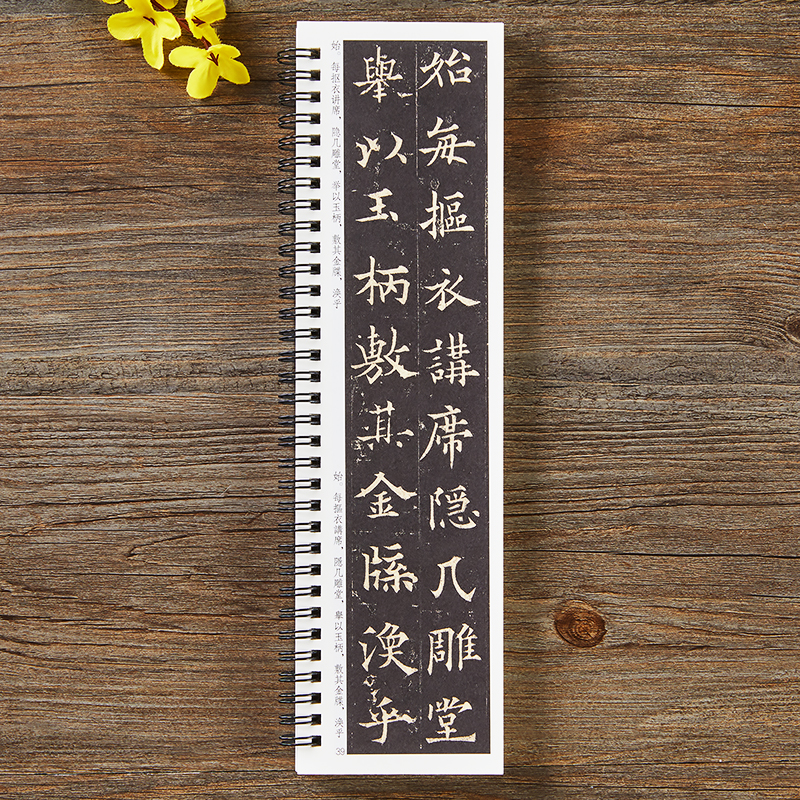 始每摳衣講席隱几雕堂
舉以玉柄敷其金牒渙乎
始。每抠衣讲席，隐几雕堂，举以玉柄，敷其金牒，涣乎
始。每摳衣講席，隱几雕堂，舉以玉柄，敷其金牒，渙乎
39